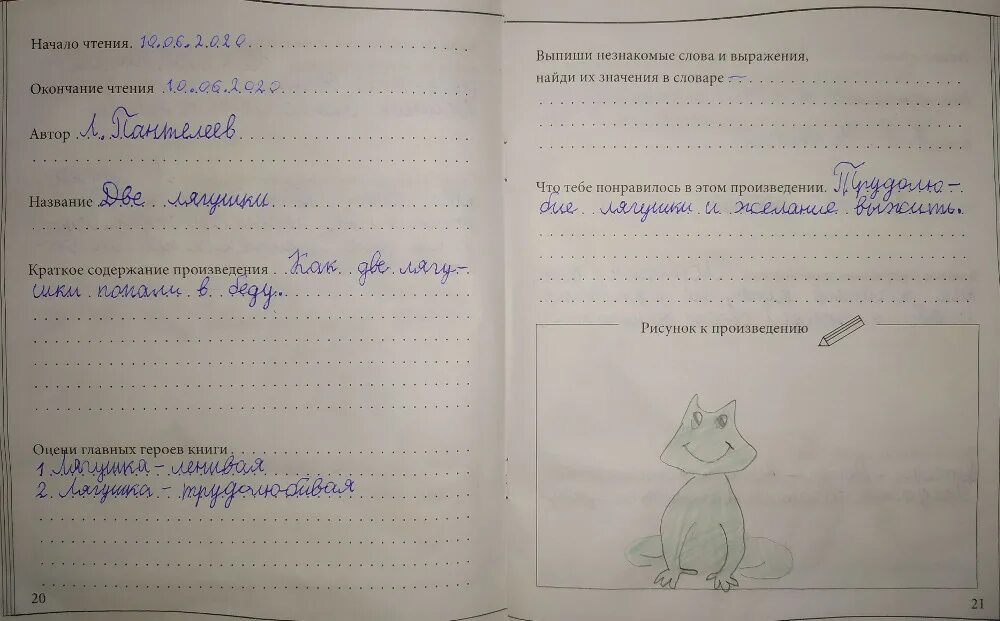 Начало чтения. 10.06.2020
Окончание чтения 10.06.2020
Автор Л. Пантелеев
Название Две лягушки
Краткое содержание произведения Как две лягу-
шки попали в беду.
Оцени главных героев книги
1 Лягушка - ленивая
2. Лягушка - трудолюбивая
20
Выпиши незнакомые слова и выражения,
найди их значения в словаре —
Что тебе понравилось в этом произведении. Трудолю-
бие лягушки и желание выжить.
Рисунок к произведению
21